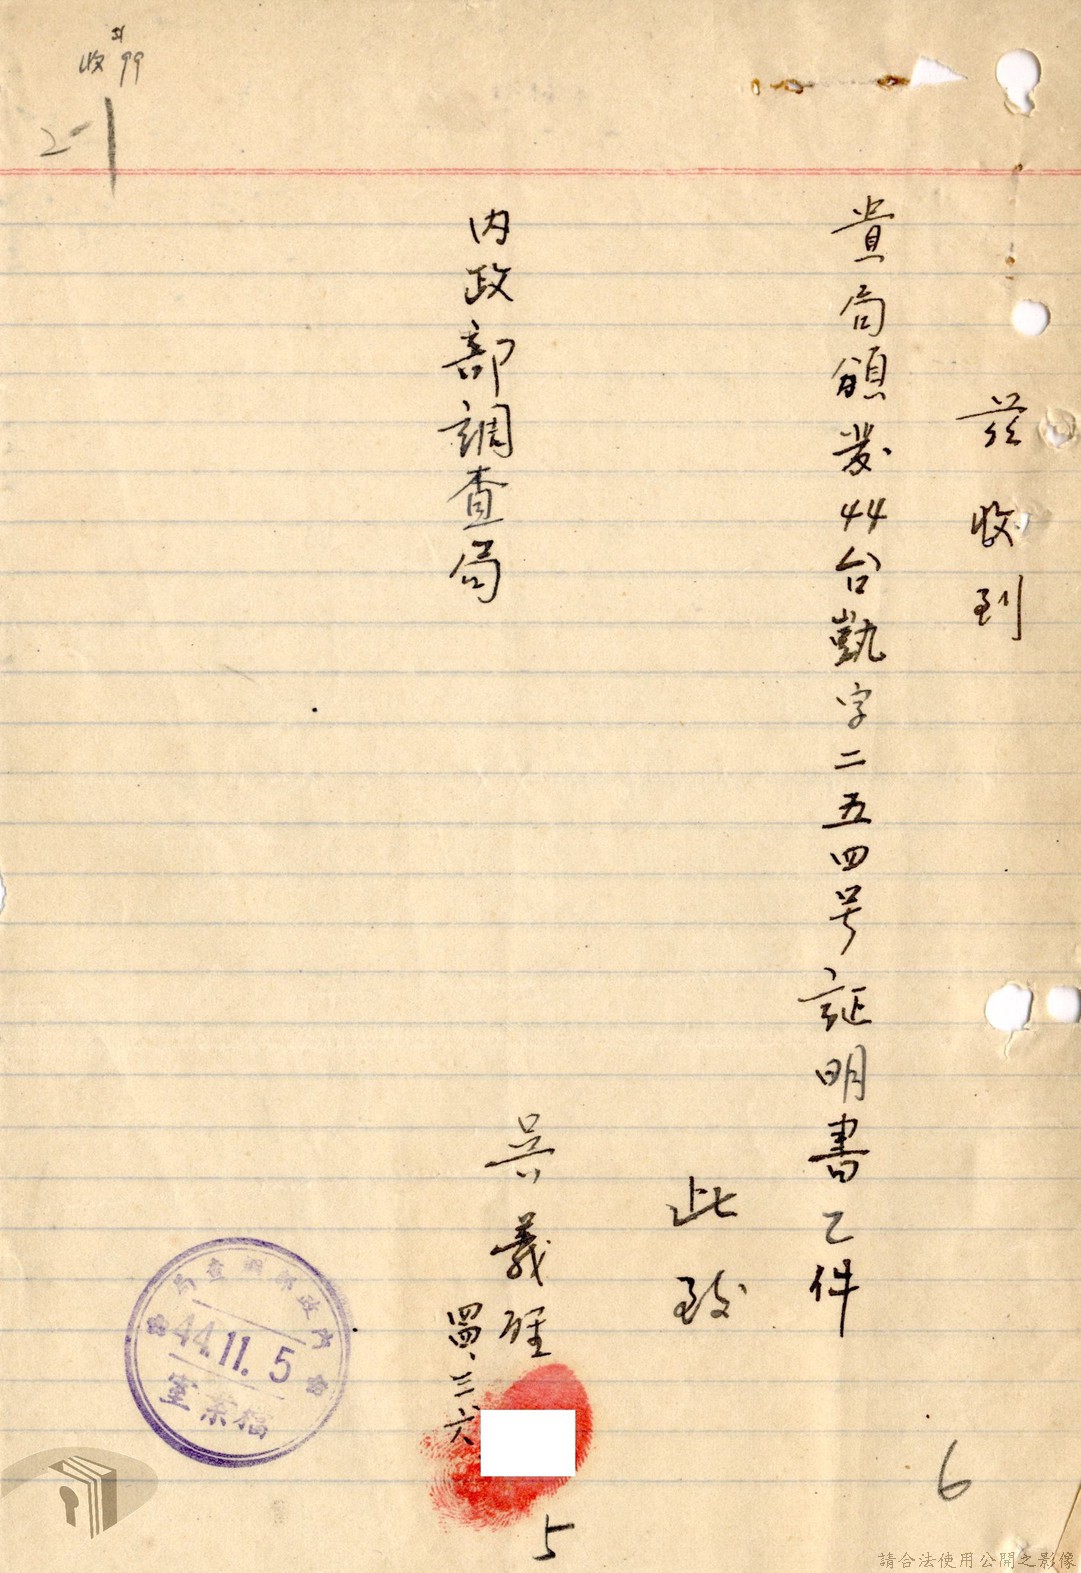 茲收到
貴局頒發44台勤字二五四号証明書乙件
此致
内政部調查局
吳義
四四、三六
5
6
收 99
2
內政部調查局
44.11.5
檔案室
請合法使用公開之影像